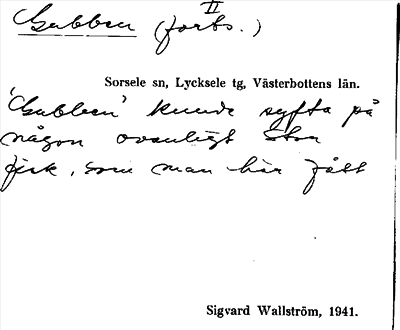 II
Gubben (forts.)
Sorsele sn, Lycksele tg, Västerbottens län.
'Gubben' kunde syfta på
någon ovanligt stor
fisk, som man här fått
Sigvard Wallström, 1941.